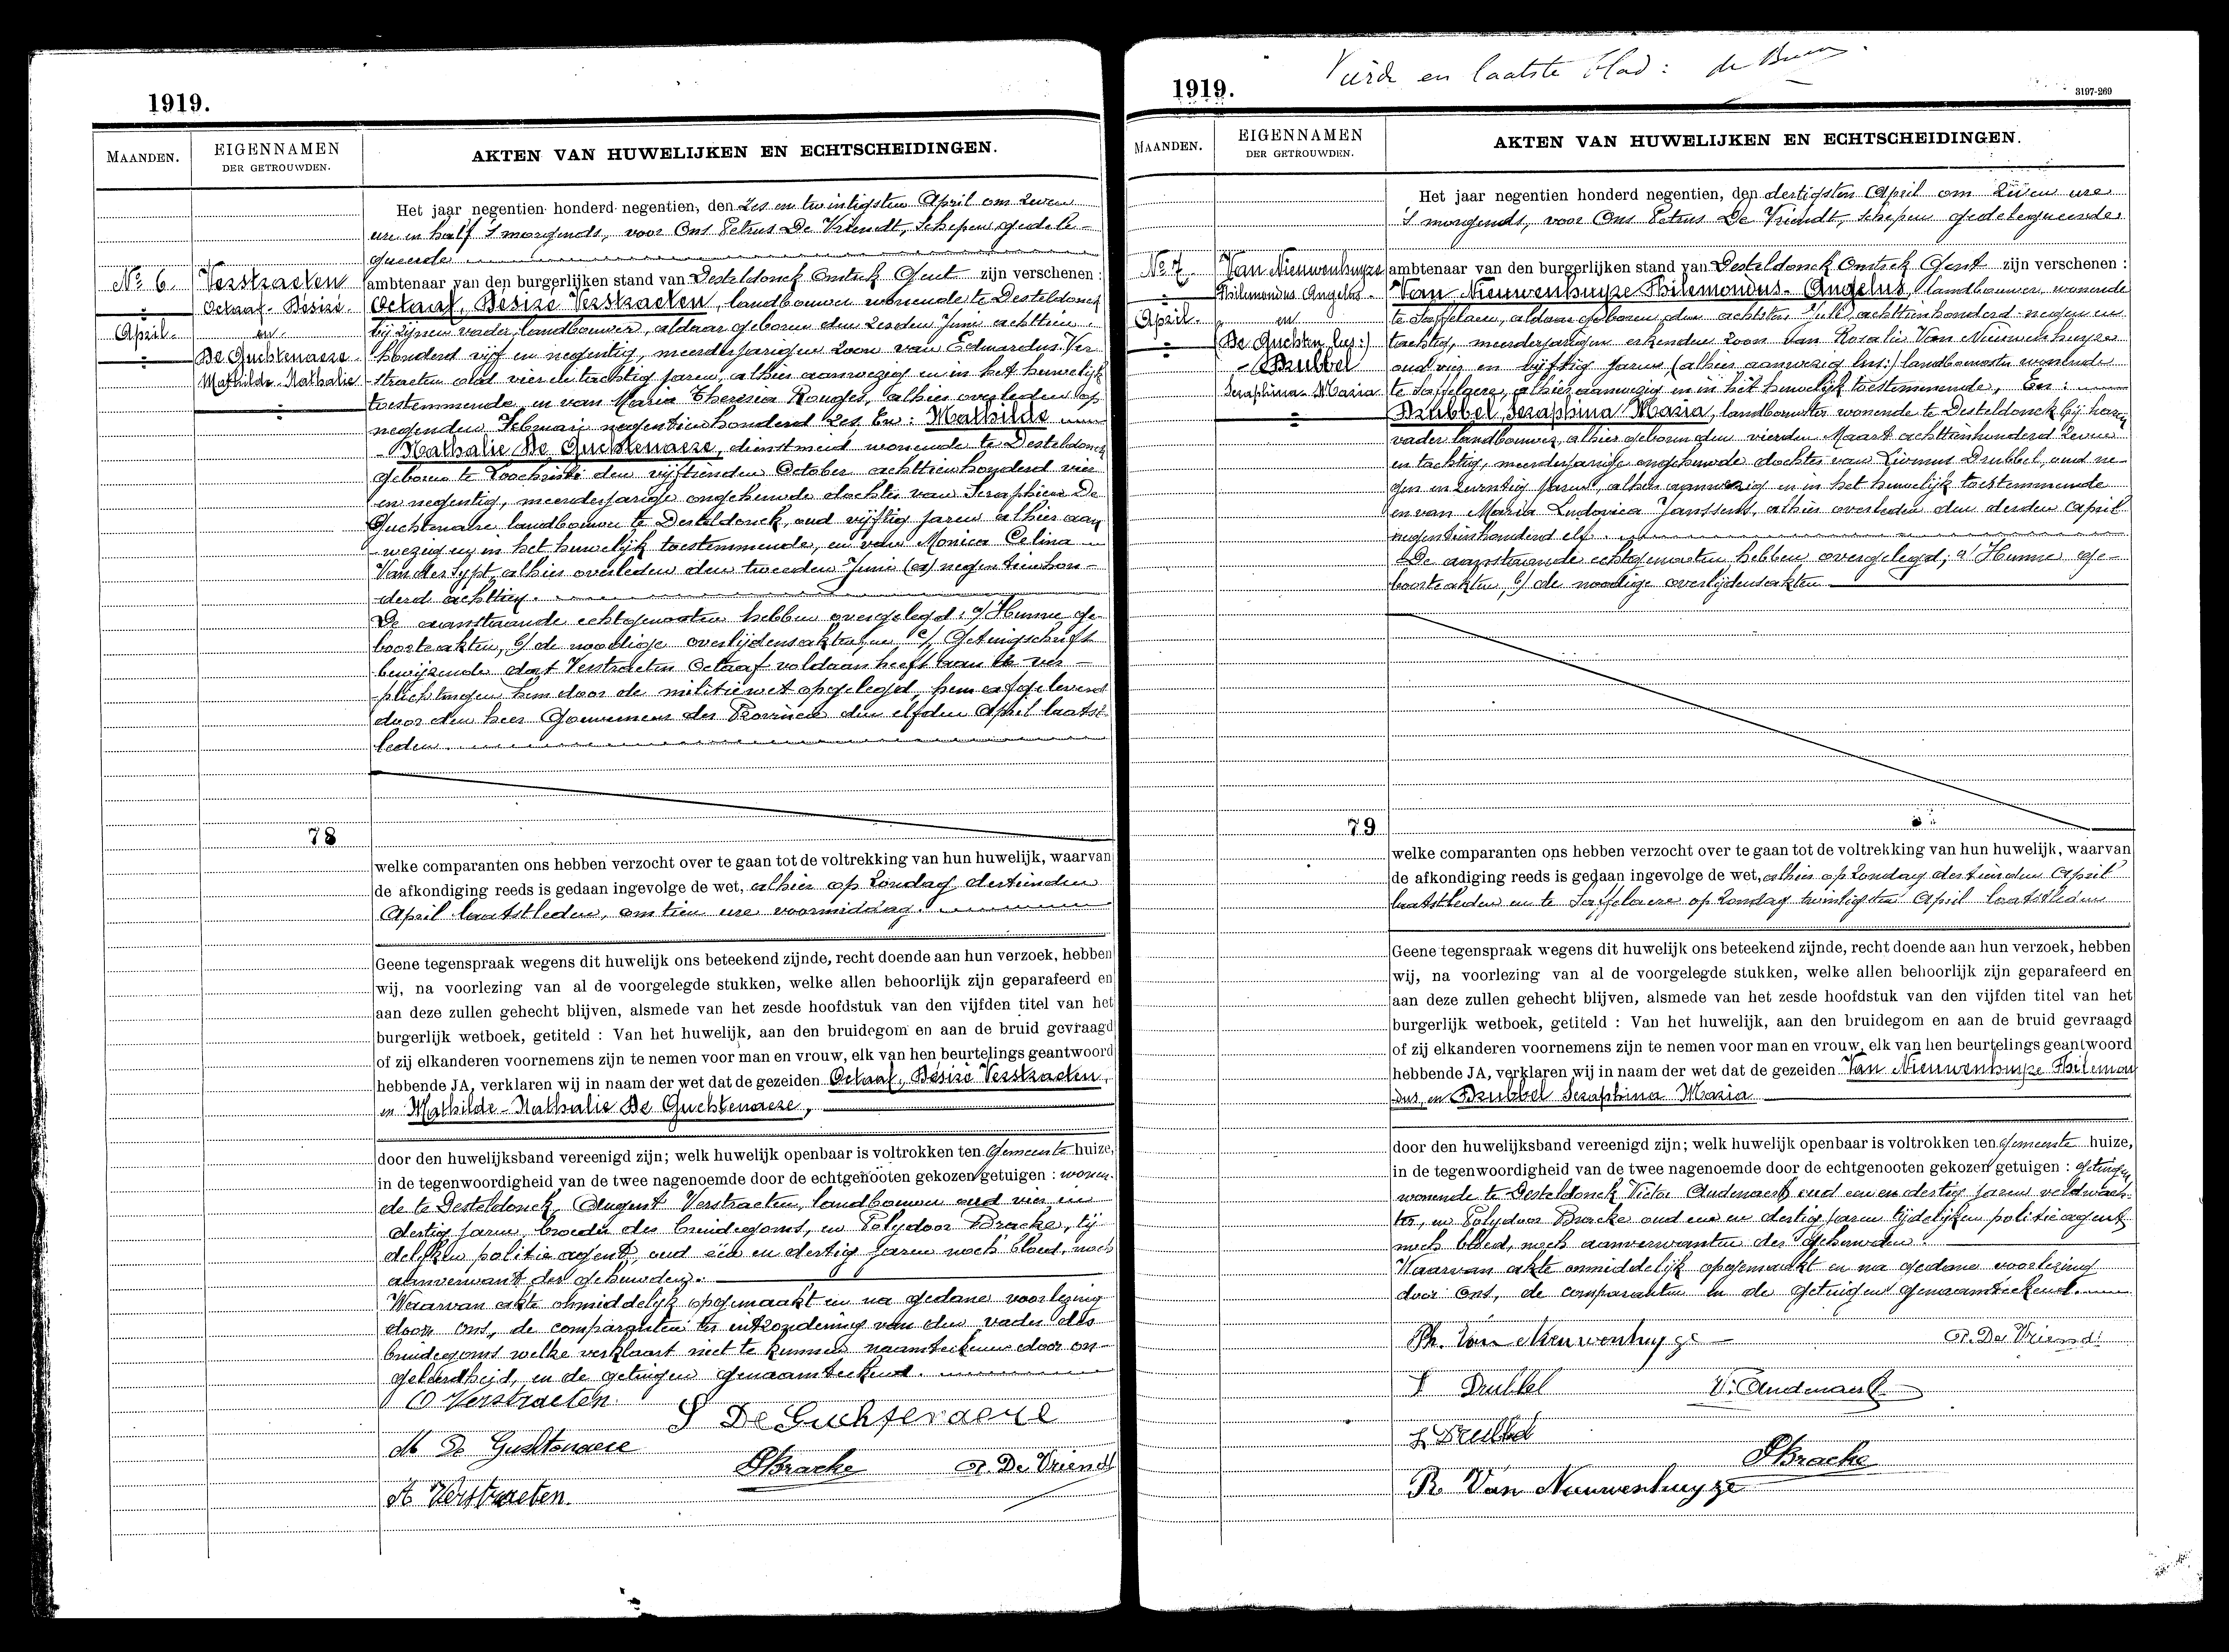 1919.
MAANDEN.
EIGENNAMEN
DER GETROUWDEN.
AKTEN VAN HUWELIJKEN EN ECHTSCHEIDINGEN.
Het jaar negentien honderd negentien, den zes en twintigsten April om zeven
ure en half 's morgends, voor Ons Petrus De Vriendt, Schepen gedele-
gueerde
No 6.
Verstraeten
Octaaf-Désiré
April.
en
De Guchtenaere
Mathilde Nathalie
ambtenaar van den burgerlijken stand van Desteldonck Omstrk Gent zijn verschenen :
Octaaf, Désiré Verstraeten, landbouwer wonende te Desteldonck
bij zijnen vader, landbouwer, aldaar geboren den zesden Juni achttien
honderd vijf en negentig, meerderjarigen zoon van Eduardus Ver
straeten oud vier en tachtig jaren, alhier aanwezeg en in het huwelijk
toestemmende, en van Maria Theresia Rouges, alhier overleden op
negenden Februari negentienhonderd zes En: Mathilde
- Nathalie De Guchtenaere, dienstmeid wonende te Desteldonck
geboren te Loochristi den vijftienden October achttienhonderd vier
en negentig, meerderjarige ongehuwde dochter van Seraphien De
Guchtenaere landbouwer te Desteldonck, oud vijftig jaren alhier aan
wezeg en in het huwelijk toestemmende, en van Monica Celina
Van der Sypt, alhier overleden den tweeden Juni negentienhon-
derd achttien.
De aanstaande echtgenooten hebben overgelegd: a/ Hunne ge-
boorteakten, b/ de noodige overlijdensakten c/ Getuigschrift
bewijzende dat Verstraeten Octaaf voldaan heeft aan de ver-
plichtingen hem door de militiewet opgelegd, hem afgeleverd
door den heer Gouverneur der Provincie den elfden April laatst
leden
78
welke comparanten ons hebben verzocht over te gaan tot de voltrekking van hun huwelijk, waarvan
de afkondiging reeds is gedaan ingevolge de wet, alhier op Zondag dertienden
April laatstleden, om tien ure voormiddag.
Geene tegenspraak wegens dit huwelijk ons beteekend zijnde, recht doende aan hun verzoek, hebben
wij, na voorlezing van al de voorgelegde stukken, welke allen behoorlijk zijn geparafeerd en
aan deze zullen gehecht blijven, alsmede van het zesde hoofdstuk van den vijfden titel van het
burgerlijk wetboek, getiteld : Van het huwelijk, aan den bruidegom en aan de bruid gevraagd
of zij elkanderen voornemens zijn te nemen voor man en vrouw, elk van hen beurtelings geantwoord
hebbende JA, verklaren wij in naam der wet dat de gezeiden Octaaf, Désiré Verstraeten,
en Mathilde-Nathalie De Guchtenaere,
door den huwelijksband vereenigd zijn; welk huwelijk openbaar is voltrokken ten Gemeente huize,
in de tegenwoordigheid van de twee nagenoemde door de echtgenooten gekozen getuigen : wonen-
de te Desteldonck, August Verstraeten, landbouwer oud vier en
dertig jaren, broeder des bruidegoms, en Polydoor Bracke, tij
delijken politie agent, oud een en dertig jaren noch bloed, noch
aanverwant der gehuwden.
Waarvan akte onmiddelijk opgemaakt en na gedane voorlezing
door Ons, de comparanten ter uitzondering van den vader des
bruidegoms welke verklaart niet te kunnen naamteekenen door on-
geleerdheid, en de getuigen genaamteekend.
O Verstraeten
S De Guchtenaere
M De Guchtenaere
PBracke
P. De Vriendt
A Verstraeten.
Vierde en laatste blad:
1919.
3197-269
MAANDEN.
EIGENNAMEN
DER GETROUWDEN.
AKTEN VAN HUWELIJKEN EN ECHTSCHEIDINGEN.
Het jaar negentien honderd negentien, den dertigsten April om zeven ure
's morgends, voor Ons Petrus De Vriendt, Schepen gedelegueerde
No 7.
Van Nieuwenhuyze
Philemondus Angelus.
April.
en
(De Guchten lees:)
- Drubbel
Seraphina Maria
ambtenaar van den burgerlijken stand van Desteldonck Omstrk Gent zijn verschenen :
Van Nieuwenhuyze Philemondus-Angelus, landbouwer wonende
te Saffelaere, aldaar geboren den achtsten Juli achttienhonderd negen en
tachtig, meerderjarigen erkenden zoon van Rosalie Van Nieuwenhuyze
oud vier en vijftig jaren (alhier aanwezig lees:) landbouwster wonende
te Saffelaere, alhier aanwezig en in het huwelijk toestemmende, En:
Drubbel Seraphina Maria, landbouwster wonende te Desteldonck bij haren
vader landbouwer, alhier geboren den vierden Maart achttienhonderd zeven
en tachtig, meerderjarige ongehuwde dochter van Livinus Drubbel, oud ne-
gen en zeventig jaren, alhier aanwezig en in het huwelijk toestemmende
en van Maria Ludovica Janssens, alhier overleden den derden April
negentienhonderd elf.
De aanstaande echtgenooten hebben overgelegd; a/ Hunne ge-
boorteakten, b/ de noodige overlijdensakten
79
welke comparanten ons hebben verzocht over te gaan tot de voltrekking van hun huwelijk, waarvan
de afkondiging reeds is gedaan ingevolge de wet, alhier op Zondag dertienden April
laatstleden en te Saffelaere op Zondag twintigsten April laatstleden
Geene tegenspraak wegens dit huwelijk ons beteekend zijnde, recht doende aan hun verzoek, hebben
wij, na voorlezing van al de voorgelegde stukken, welke allen behoorlijk zijn geparafeerd en
aan deze zullen gehecht blijven, alsmede van het zesde hoofdstuk van den vijfden titel van het
burgerlijk wetboek, getiteld : Van het huwelijk, aan den bruidegom en aan de bruid gevraagd
of zij elkanderen voornemens zijn te nemen voor man en vrouw, elk van hen beurtelings geantwoord
hebbende JA, verklaren wij in naam der wet dat de gezeiden Van Nieuwenhuyze Philemon
dus, en Drubbel Seraphina Maria
door den huwelijksband vereenigd zijn; welk huwelijk openbaar is voltrokken ten Gemeente huize,
in de tegenwoordigheid van de twee nagenoemde door de echtgenooten gekozen getuigen : getuigen
wonende te Desteldonck Victor Audenaert oud een en dertig jaren veldwach-
ter, en Polydoor Bracke oud een en dertig jaren tijdelijken politieagent
noch bloed, noch aanverwanten der gehuwden.
Waarvan akte onmiddelijk opgemaakt en na gedane voorlezing
door Ons, de comparanten en de getuigen genaamteekend.
Ph. Van Nieuwenhuyze
P. De Vriendt
S Drubbel
V. Audenaert
L Drubbel
PBracke
R Van Nieuwenhuyze